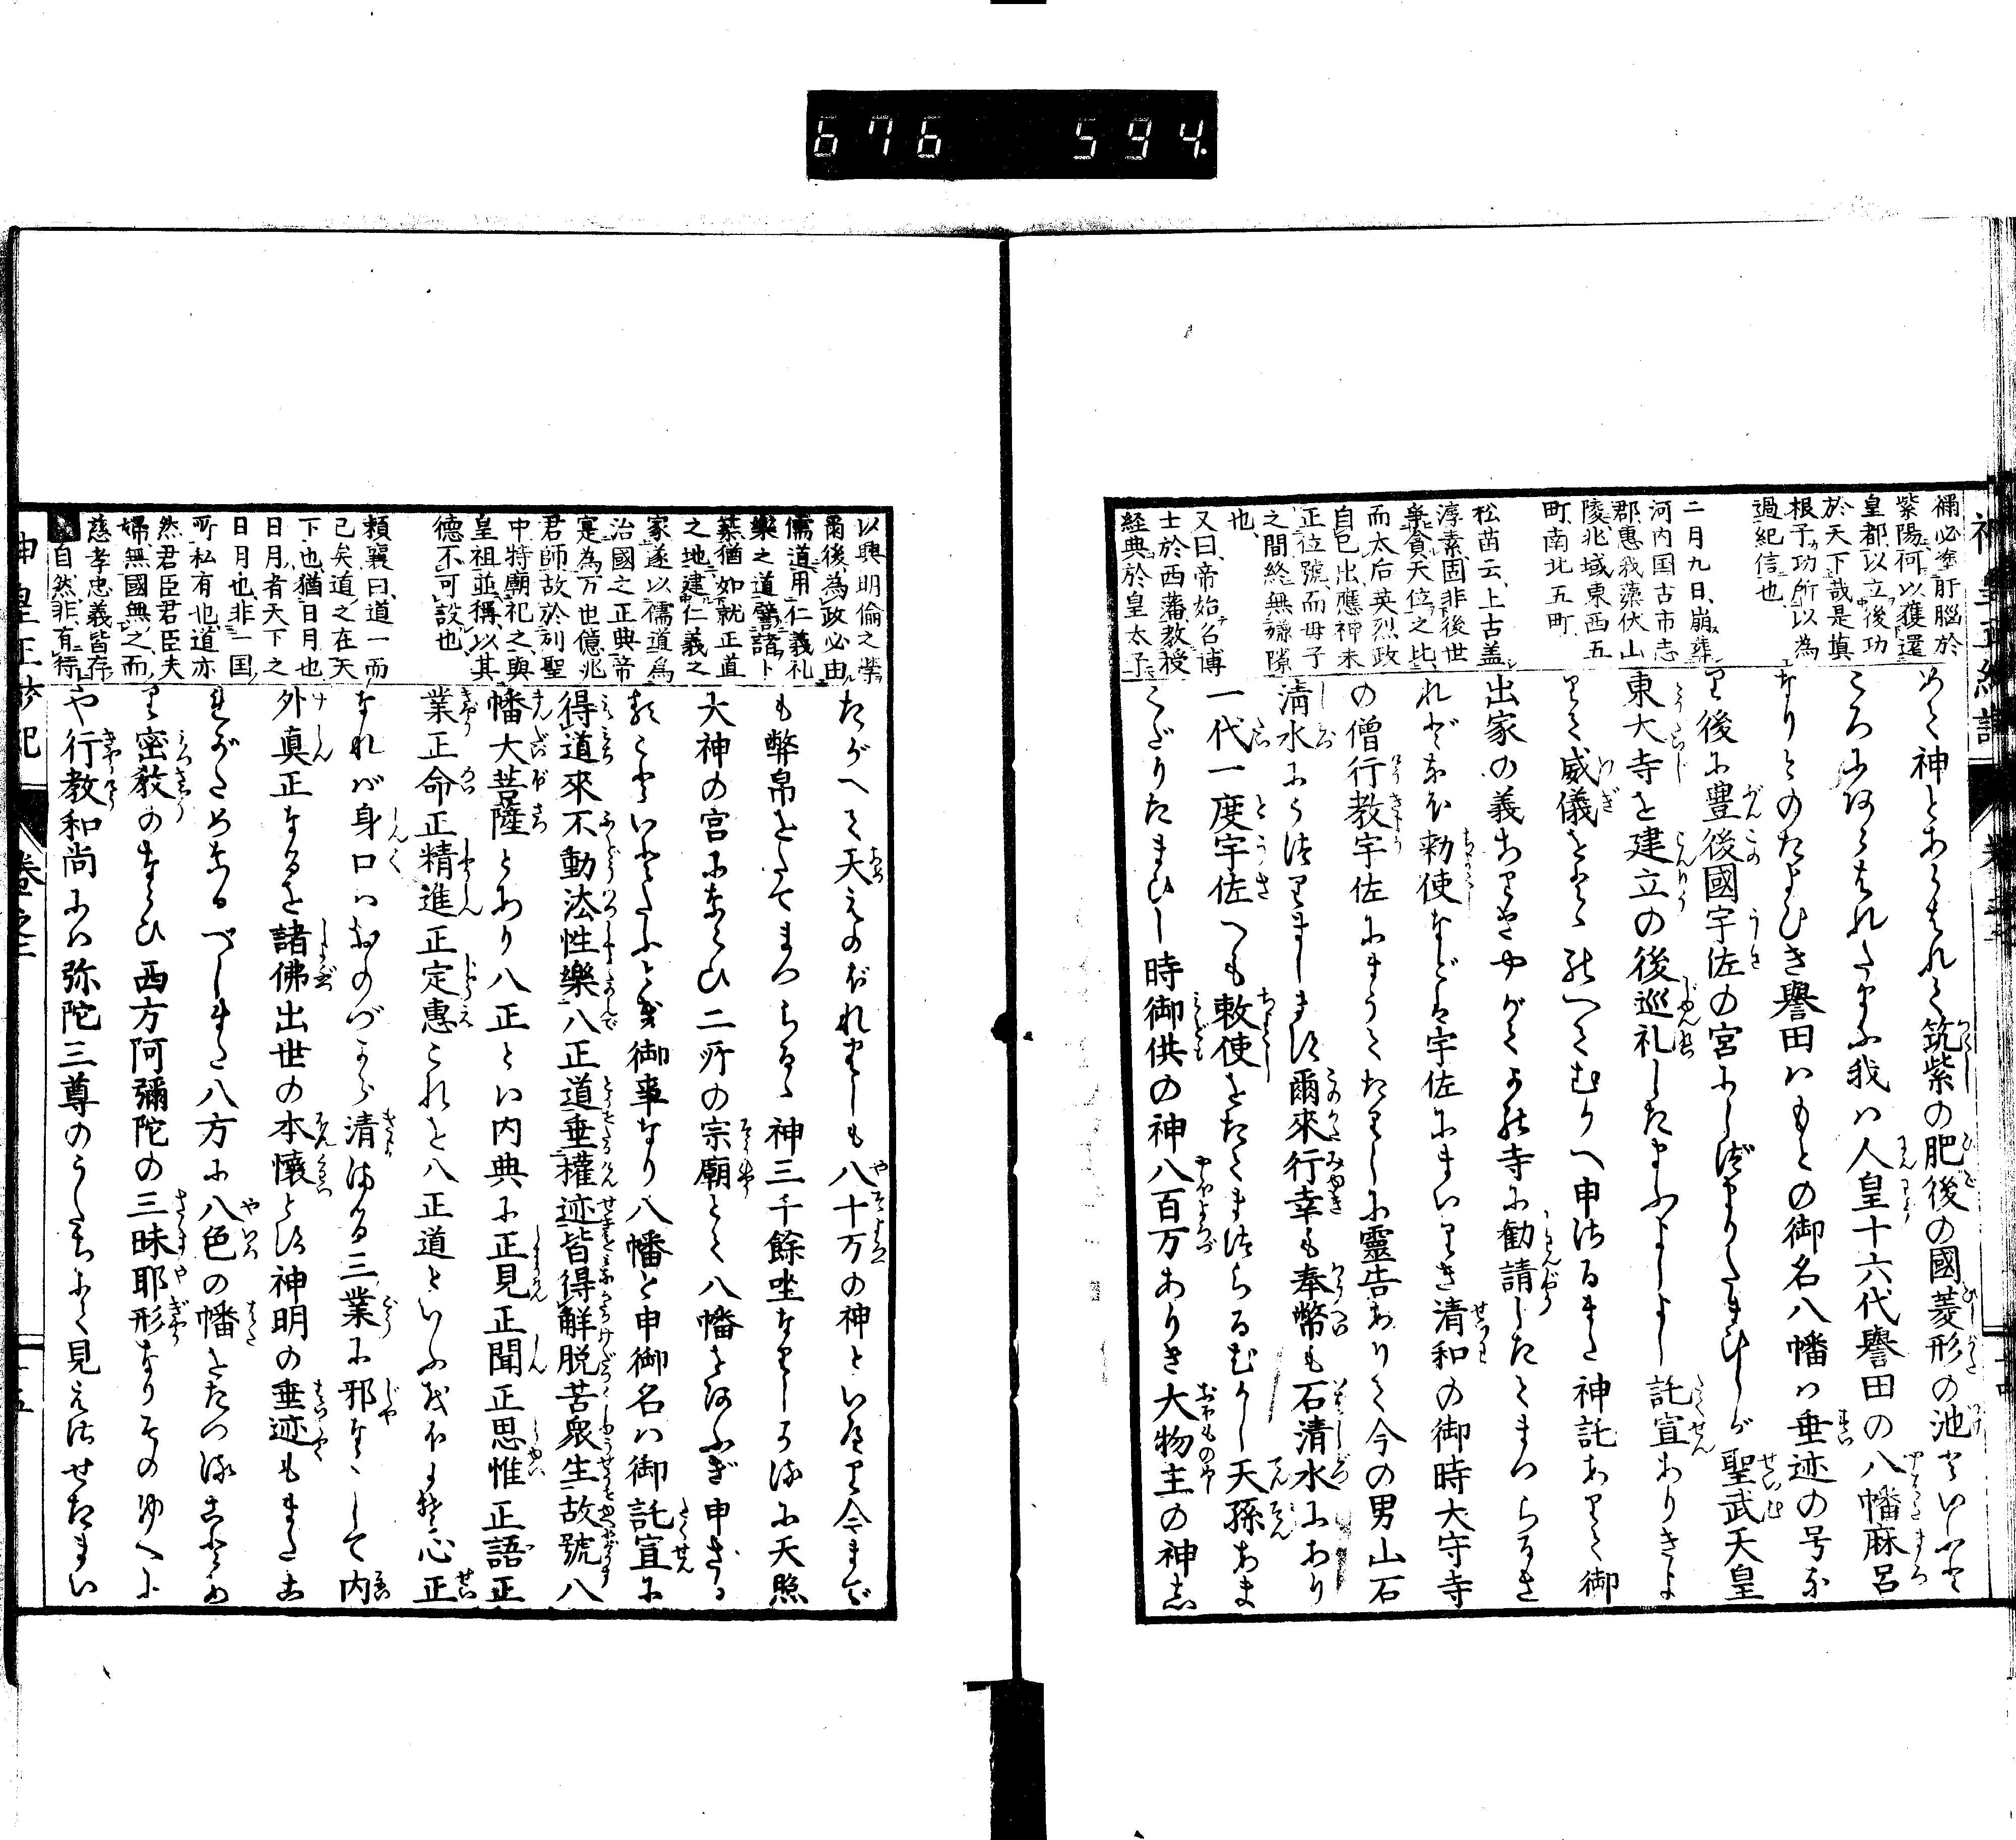 676 594
神皇正統記
禰必塗肝腦於
紫陽何以獲還
皇都以立後功
於天下哉是填
根子功所以為
過紀信也
二月九日崩葬
河内国古市志
郡惠我藻伏山
陵兆域東西五
町南北五町
松苗云上古盖
淳素固非後世
棄貪天位之比
而太后英烈政
自己出應神未
正位號而毋子
之間終無嫌隙
也
又曰帝始名博
士於西蕃教授
経典於皇太子
めて神とあらはれて筑紫の肥後の國菱形の池といふと
ころにあらはれたまふ我ハ人皇十六代譽田の八幡麻呂
なりとのたまひき譽田ハもとの御名八幡ハ垂迹の号な
り後に豐後國宇佐の宮にしづまりたまひしが聖武天皇
東大寺を建立の後巡礼したまふよしよし託宣ありきよ
りて威儀をとゝのへてむかへ申さるまた神託ありて御
出家の義ありきやがてかの寺に勸請したてまつらるき
れどなほ勅使などは宇佐にまいりき清和の御時大守寺
の僧行教宇佐にまうてたりしに靈告ありて今の男山石
清水にうつりまします爾來行幸も奉幣も石清水にあり
一代一度宇佐へも敕使をたてまつらるむかし天孫あま
くだりたまひし時御供の神八百万ありき大物主の神し
以興明倫之學
爾後為政必由
儒道用仁義礼
樂之道譬諸卜
築猶如就正直
之地建仁義之
家遂以儒道為
治國之正典帝
寔為万世億兆
君師故於列聖
中特廟祀之與
皇祖並稱以其
德不可設也
頼襄曰道一而
已矣道之在天
下也猶日月也
日月者天下之
日月也非一国
所私有也道亦
然君臣君臣夫
婦無國無之而
慈孝忠義皆存
自然非有待
たがへて天えのぼれりしも八十万の神といへり今まで
も弊帛をたてまつらるゝ神三千餘坐なりしかるに天照
大神の宮にならひ二所の宗廟とて八幡をあふぎ申さる
ることいとたふとき御事なり八幡と申御名ハ御託宣に
得道來不動法性樂八正道垂權迹皆得解脱苦衆生故號八
幡大菩薩とあり八正とハ内典に正見正聞正思惟正語正
業正命正精進正定惠これを八正道といふ凡そ心正
なれバ身口ハおのづから清まる三業に邪なくして内
外真正なるを諸佛出世の本懷とす神明の垂迹もまたこ
れがためなるべしまた八方に八色の幡をたつることあ
り密教のならひ西方阿彌陀の三昧耶形なりそのゆへに
や行教和尚にハ弥陀三尊のかたちにて見えさせたまい
神皇正統記 巻之三 十五